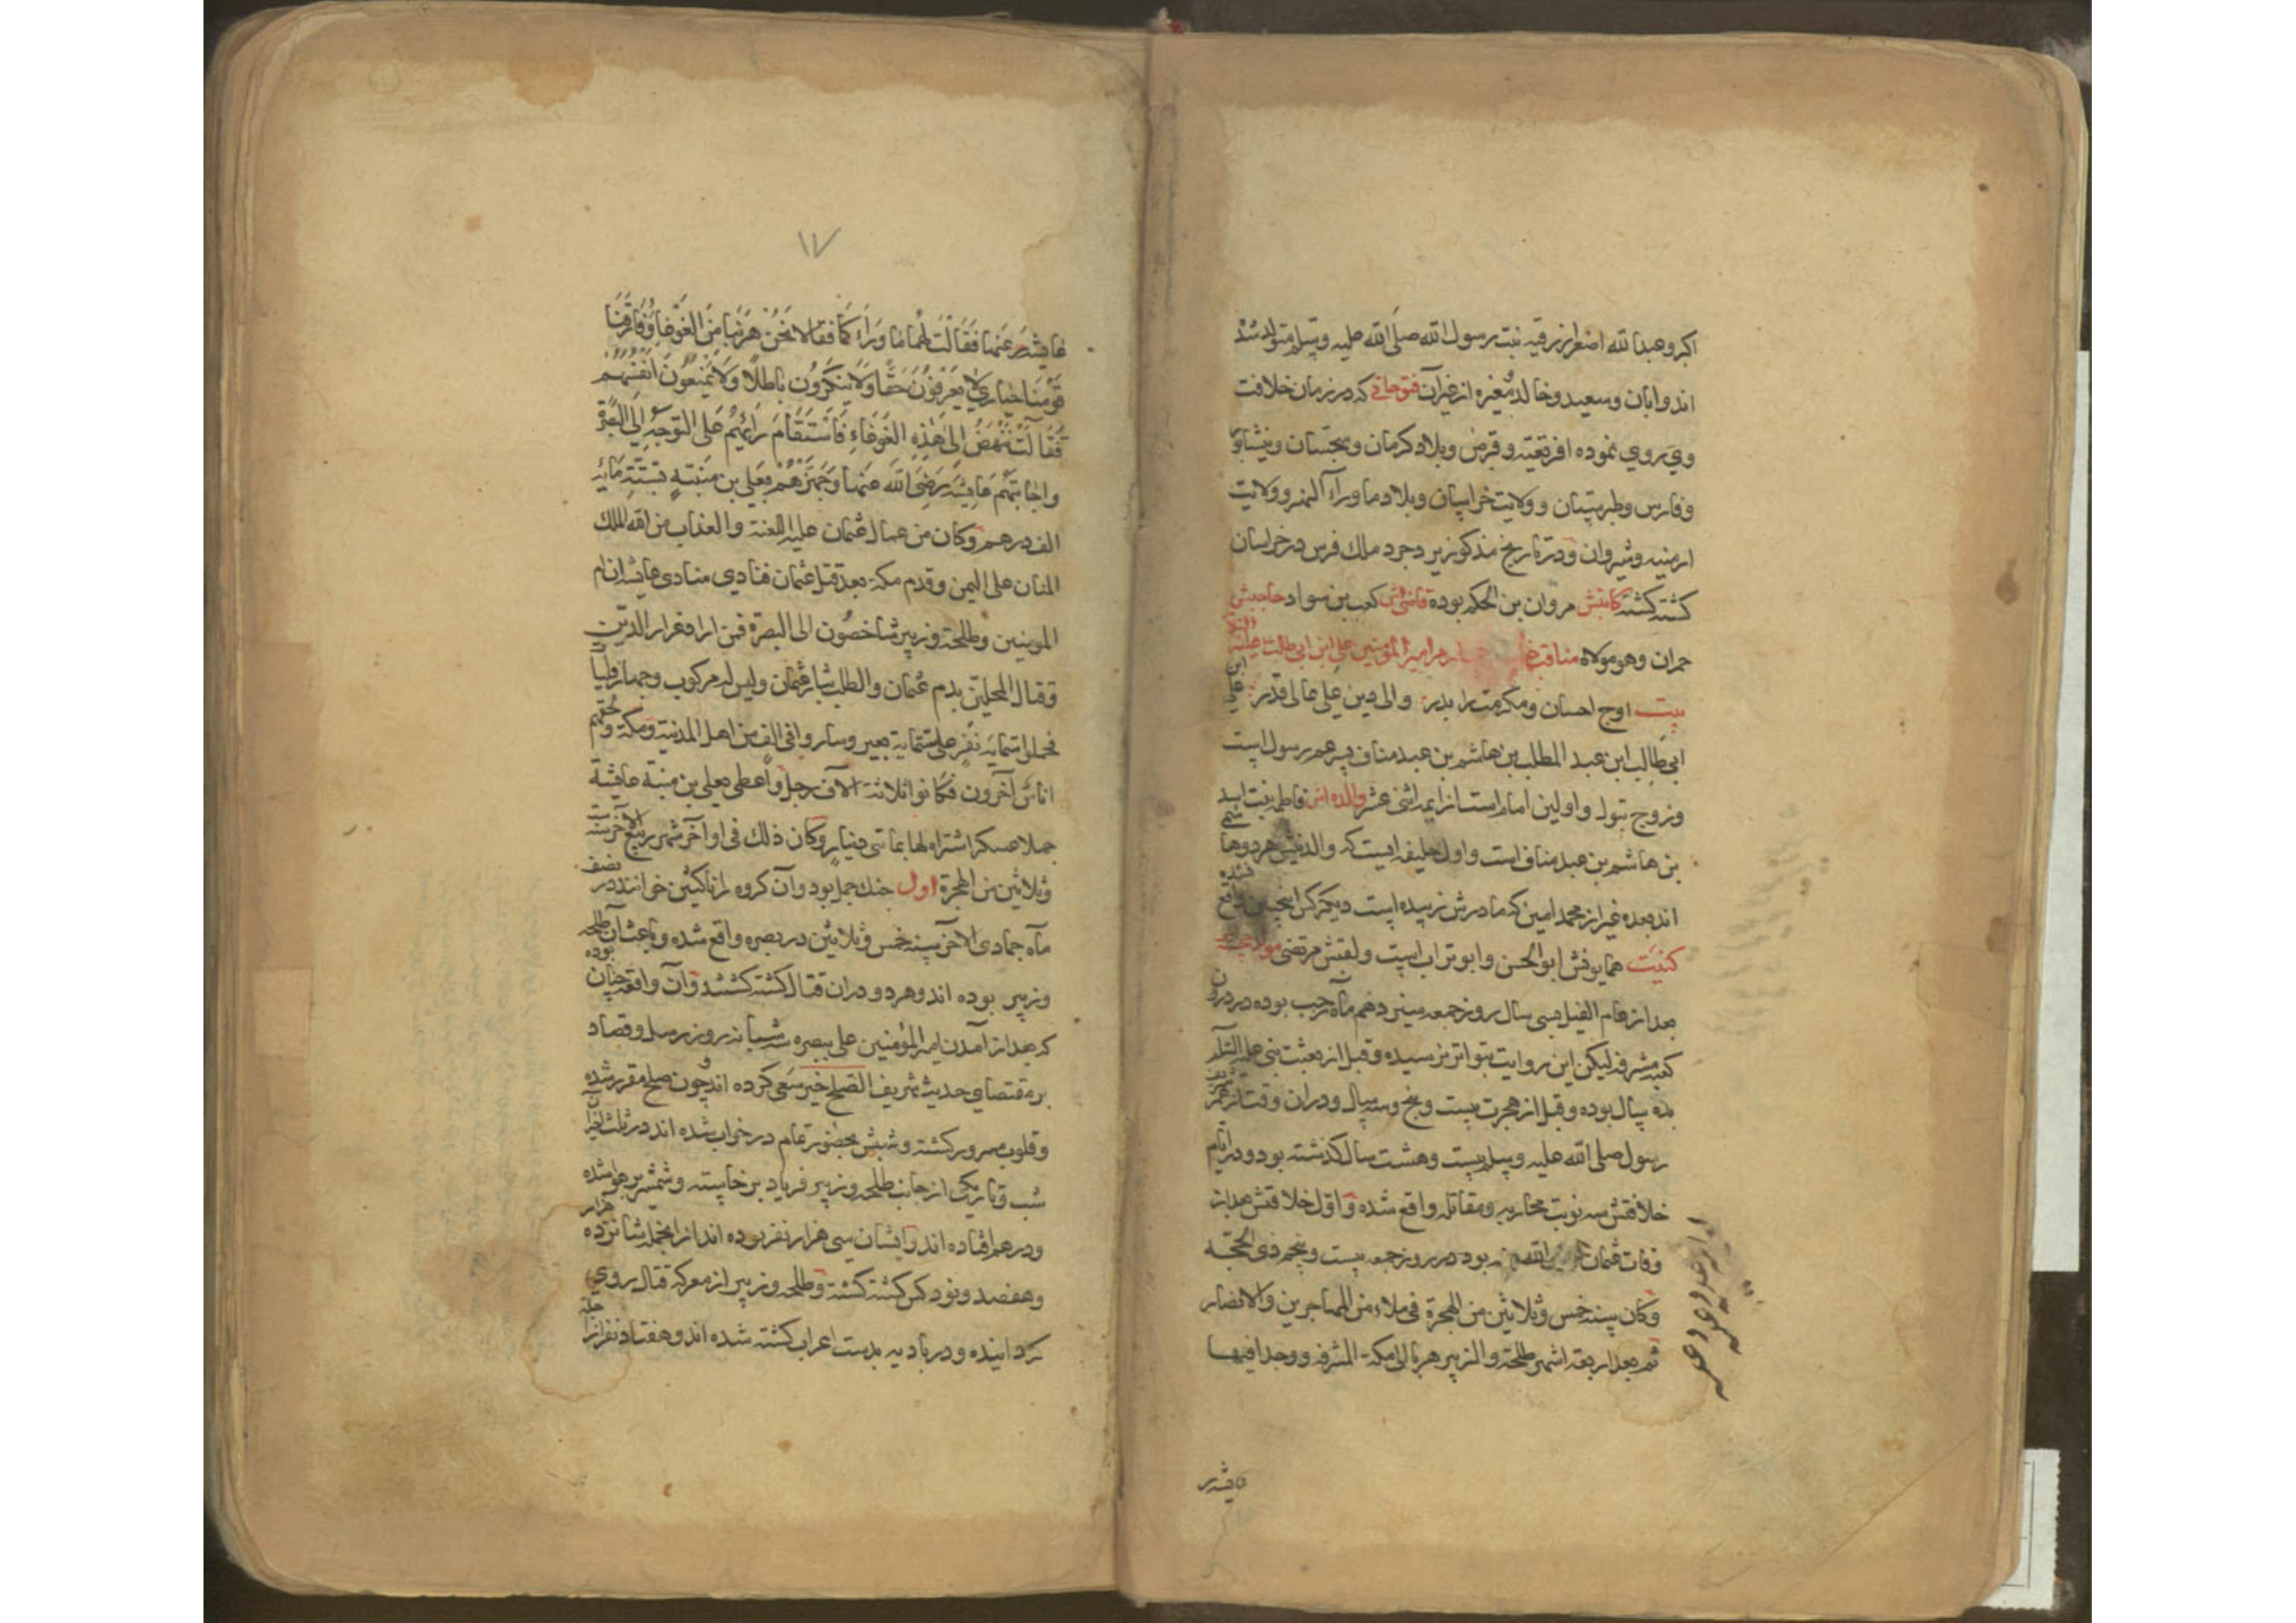 اكبر و عبدالله اصغر از رقیه بنت رسول الله صلی الله علیه وسلم متولد شد
اند و ابان و سعید و خالد و مغیره از غیر آن فتوحاتی که در زمان خلافت
وی روی نموده افریقیه و قبرص و بلاد کرمان و سجستان و نیشابور
و فارس و طبرستان و ولایت خراسان و بلاد ماوراء النهر و ولایت
ارمنیه و شیروان و در تاریخ مذکور یزدجرد ملک فرس در خراسان
کشته کشته کاتبش مروان بن الحکم بوده قاضی اش کعب بن سواد حاجبش
حمران وهو مولاه مناقب امیر المؤمنین علی ابن ابی طالب علیه
بیت اوج احسان و مکرمت را بدر والی دین علی عالی قدر علی ابن
ابی طالب ابن عبد المطلب بن هاشم بن عبد مناف پسر عم رسول است
و زوج بتول و اولین امام است از ایمه اثنی عشر والده اش فاطمه بنت اسد
بن هاشم بن عبد مناف است و اول خلیفه ایست که والدینش هر دو هاشمی
اند بعده غیر از محمد امین که مادرش زبیده است دیگر کس اینچنین واقع نشده
کنیت همایونش ابو الحسن و ابو تراب است و لقبش مرتضی مولد
بعد از عام الفیل بسی سال روز جمعه سیزدهم ماه رجب بوده در درون
کعبه مشرفه لیکن این روایت بتواتر نرسیده و قبل از بعثت نبی علیه السلام
بده سال بوده و قبل از هجرت بیست و سه سال و در آن وقت از عمر شریف
رسول صلی الله علیه وسلم بیست و هشت سال کذشته بود و در ایام
خلافتش سه نوبت محاربه و مقاتله واقع شده و اول خلافتش بعد از
وفات عثمان بود در روز جمعه بیست و پنجم ذی الحجه
وكان سنه خمس وثلاثين من الهجرة فی ملاء من المهاجرین والانصار
ثم بعد اربعة اشهر طلحة والزبير هربا الی مكة المشرفه ووجدا فیها
عایشه
۱۷
عایشه عنها فقالت لهما ما وراء كما فقالا نحن هربنا من الغوغا وفارقنا
قومنا حیاری لا یعرفون حقا ولا ینكرون باطلا ولا یمنعون انفسهم
فقالت ننهض الی هذه الغوغاء فاستقام رأيهم علی التوجه الی البصرة
واجابتهم عایشه رضی الله عنها وجهزهم یعلی بن منبته بستة مائة
الف درهم وكان من عمال عثمان علیه اللعنة والعذاب من الله الملك
المنان علی الیمن وقدم مكة بعد قتل عثمان فنادی منادی عایشه ان ام
المومنین وطلحة وزبیر شاخصون الی البصرة فمن اراد غرار الدین
وقتال المحلین بدم عثمان والطلب بثار عثمان ولیس له مركوب وجهاز فلیأ
فحملوا ستمایة نفر علی ستمایة بعیر وساروا فی الف من اهل المدینة ومكة ولحقهم
اناس آخرون فكانوا ثلاثة آلاف رجل واعطی یعلی بن منبة عایشة
جملا عسكر اشتراه لها بمائتی دینار وكان ذلك فی اواخر شهر ربیع الآخر سنة ست
وثلاثین من الهجرة اول جنك جمل بود و آن كروه را ناكثین خوانند در نصف
ماه جمادی الاخر سنه خمس وثلاثین در بصره واقع شده و باعث آن طلحه
و زبیر بوده اند و هر دو در ان قتال كشته كشتند و آن واقعه چنان بوده
كه بعد از آمدن امیر المؤمنین علی ببصره سه شبانه روز رسل و قصاد
بر مقتضای حدیث شریف الصلح خیر سعی كرده اند و چون صلح مقرر شده
و قلوب مسرور كشته و شبش بحضور تمام در خواب شده اند در ثلث اخیر
شب و تاریك از جانب طلحه و زبیر فریاد بر خاسته و شمشیر بر هوا شده
و در هم افتاده اند و ایشان سی هزار نفر بوده اند از انجمله شانزده هزار
و هفصد و نود كس كشته كشته و طلحه و زبیر از معركه قتال روی
كردانیده و در بادیه بدست اعراب كشته شده اند و هفتاد نفر از